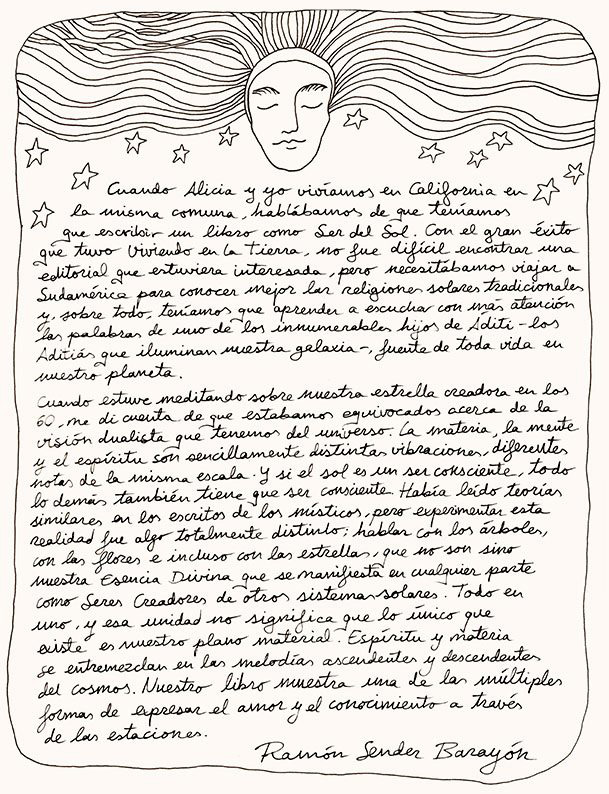 Cuando Alicia y yo vivíamos en California en
la misma comuna, hablábamos de que teníamos
que escribir un libro como Ser del Sol. Con el gran éxito
que tuvo Viviendo en la Tierra, no fue difícil encontrar una
editorial que estuviera interesada, pero necesitábamos viajar a
Sudamérica para conocer mejor las religiones solares tradicionales
y, sobre todo, teníamos que aprender a escuchar con más atención
las palabras de uno de los innumerables hijos de Aditi -los
Aditiás que iluminan nuestra galaxia-, fuente de toda vida en
nuestro planeta.
Cuando estuve meditando sobre nuestra estrella creadora en los
60, me di cuenta de que estabamos equivocados acerca de la
visión dualista que tenemos del universo. La materia, la mente
y el espíritu son sencillamente distintas vibraciones, diferentes
notas de la misma escala. Y si el sol es un ser consciente, todo
lo demás también tiene que ser consciente. Había leído teorías
similares en los escritos de los místicos, pero experimentar esta
realidad fue algo totalmente distinto; hablar con los árboles,
con las flores e incluso con las estrellas, que no son sino
nuestra Esencia Divina que se manifiesta en cualquier parte
como Seres Creadores de otros sistemas solares. Todo en
uno, y esa unidad no significa que lo único que
existe es nuestro plano material. Espíritu y materia
se entremezclan en las melodías ascendentes y descendentes
del cosmos. Nuestro libro muestra una de las múltiples
formas de expresar el amor y el conocimiento a través
de las estaciones.
Ramón Sender Barayón